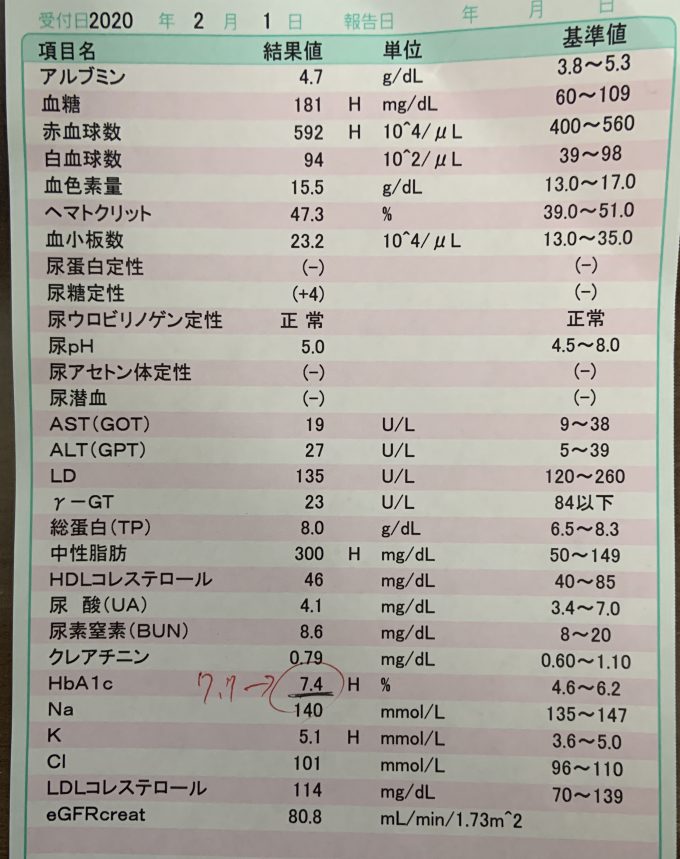 受付日2020 年 2 月 1 日 報告日 年 月 日
項目名 結果値 単位 基準値
アルブミン 4.7 g/dL 3.8～5.3
血糖 181 H mg/dL 60～109
赤血球数 592 H 10^4/μL 400～560
白血球数 94 10^2/μL 39～98
血色素量 15.5 g/dL 13.0～17.0
ヘマトクリット 47.3 % 39.0～51.0
血小板数 23.2 10^4/μL 13.0～35.0
尿蛋白定性 (-) (-)
尿糖定性 (+4) (-)
尿ウロビリノゲン定性 正常 正常
尿pH 5.0 4.5～8.0
尿アセトン体定性 (-) (-)
尿潜血 (-) (-)
AST(GOT) 19 U/L 9～38
ALT(GPT) 27 U/L 5～39
LD 135 U/L 120～260
γ－GT 23 U/L 84以下
総蛋白(TP) 8.0 g/dL 6.5～8.3
中性脂肪 300 H mg/dL 50～149
HDLコレステロール 46 mg/dL 40～85
尿 酸(UA) 4.1 mg/dL 3.4～7.0
尿素窒素(BUN) 8.6 mg/dL 8～20
クレアチニン 0.79 mg/dL 0.60～1.10
HbA1c 7.7→ 7.4 H % 4.6～6.2
Na 140 mmol/L 135～147
K 5.1 H mmol/L 3.6～5.0
Cl 101 mmol/L 96～110
LDLコレステロール 114 mg/dL 70～139
eGFRcreat 80.8 mL/min/1.73m^2